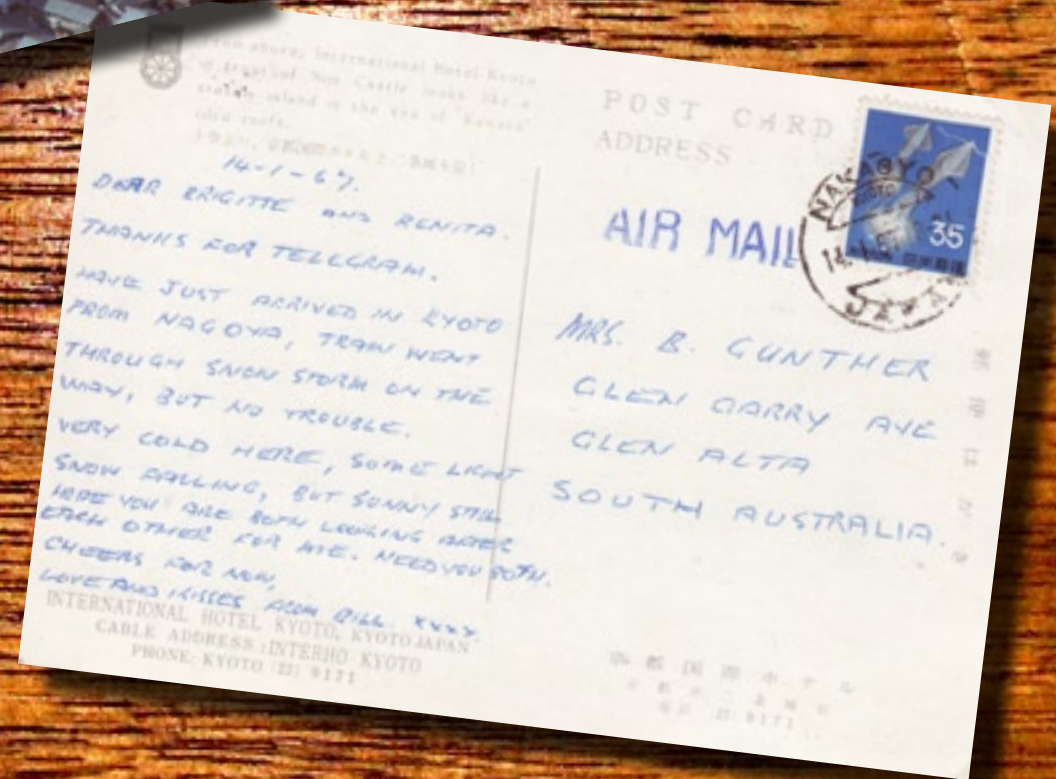 From above, International Hotel Kyoto
in front of Nijo Castle looks like a
island in the sea of "Kawara"
tiled roofs.
14-1-67.
DEAR BRIGITTE AND RENITA.
THANKS FOR TELEGRAM.
HAVE JUST ARRIVED IN KYOTO
FROM NAGOYA, TRAIN WENT
THROUGH SNOW STORM ON THE
WAY, BUT NO TROUBLE.
VERY COLD HERE, SOME LIGHT
SNOW FALLING, BUT SUNNY STILL
HOPE YOU ARE BOTH LOOKING AFTER
EACH OTHER FOR ME. NEED YOU BOTH.
CHEERS FOR NOW,
LOVE AND KISSES FROM BILL. XXXX.
INTERNATIONAL HOTEL KYOTO, KYOTO JAPAN
CABLE ADDRESS: INTERHO KYOTO
PHONE: KYOTO (22) 9171
POST CARD
ADDRESS
AIR MAIL
35
日本郵便
NAKAGYO
JAPAN
MRS. B. GUNTHER
GLEN GARRY AVE
GLEN ALTA
SOUTH AUSTRALIA.
京都国際ホテル